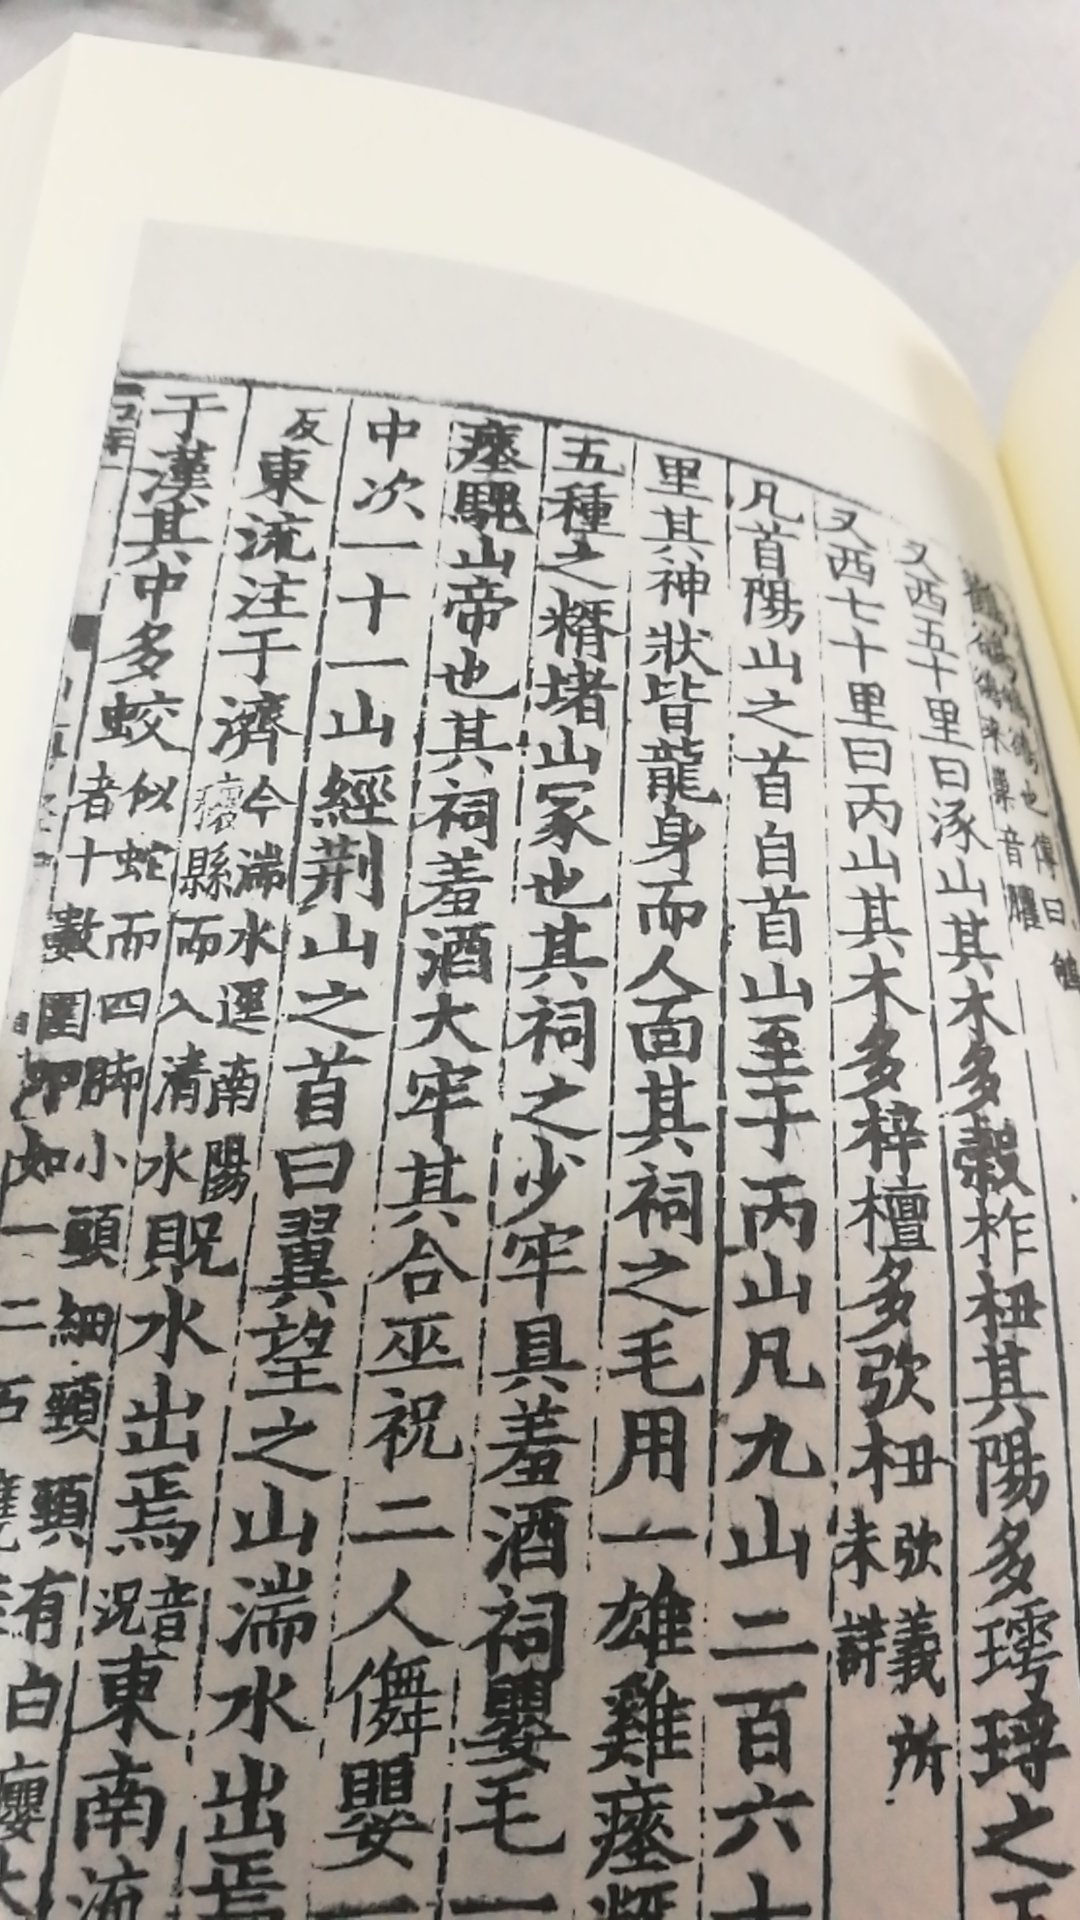 鸜鵒也傳曰鵒
鸜鵒來巢音臞
又西五十里曰涿山其木多榖柞杻其陽多㻬琈之玉
又西七十里曰丙山其木多梓檀多弞杻弞義所
未詳
凡首陽山之首自首山至于丙山凡九山二百六十
里其神狀皆龍身而人面其祠之毛用一雄雞瘞
五種之糈堵山冢也其祠之少牢具羞酒祠嬰毛一
瘞騩山帝也其祠羞酒大牢其合巫祝二人儛嬰一
中次一十一山經荆山之首曰翼望之山湍水出焉
反東流注于濟今湍水逕南陽
穰縣而入清水貺水出焉音
況東南流
于漢其中多蛟似蛇而四脚小頭細頸頸有白癭大
者十數圍卵如一二石